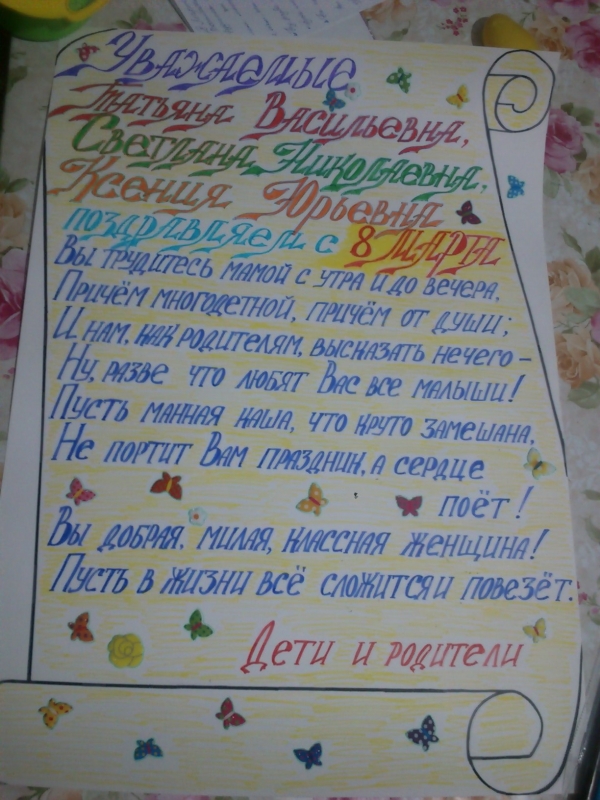 Уважаемые
Татьяна Васильевна,
Светлана Николаевна,
Ксения Юрьевна
поздравляем с 8 МАРТА
Вы трудитесь мамой с утра и до вечера,
Причём многодетной, причём от души;
И нам, как родителям, высказать нечего –
Ну, разве что любят Вас все малыши!
Пусть манная каша, что круто замешана,
Не портит Вам праздник, а сердце
поёт!
Вы добрая, милая, классная женщина!
Пусть в жизни всё сложится и повезёт.
Дети и родители